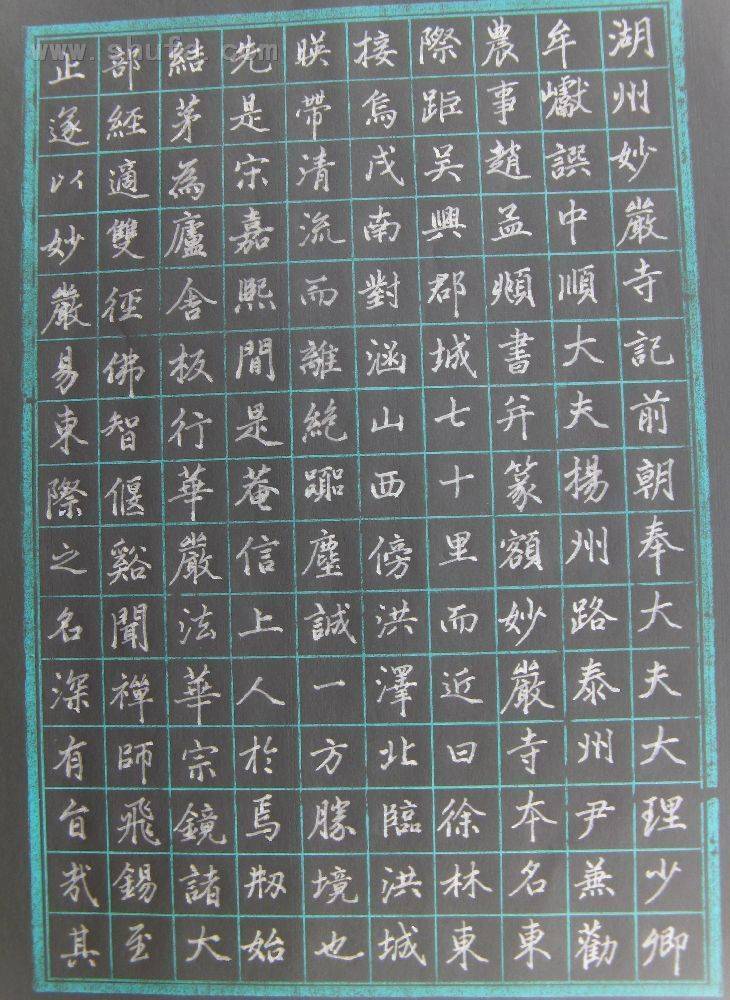 www.shufa.com
湖州妙嚴寺記前朝奉大夫大理少卿
牟巘譔中順大夫揚州路泰州尹兼勸
農事趙孟頫書并篆額妙嚴寺本名東
際距吳興郡城七十里而近曰徐林東
接烏戍南對涵山西傍洪澤北臨洪城
暎帶清流而離絶塵誠一方勝境也
先是宋嘉熙間是菴信上人於焉刱始
結茅為廬舍板行華嚴法華宗鏡諸大
部經適雙徑佛智偃谿聞禪師飛錫至
止遂以妙嚴易東際之名深有旨哉其